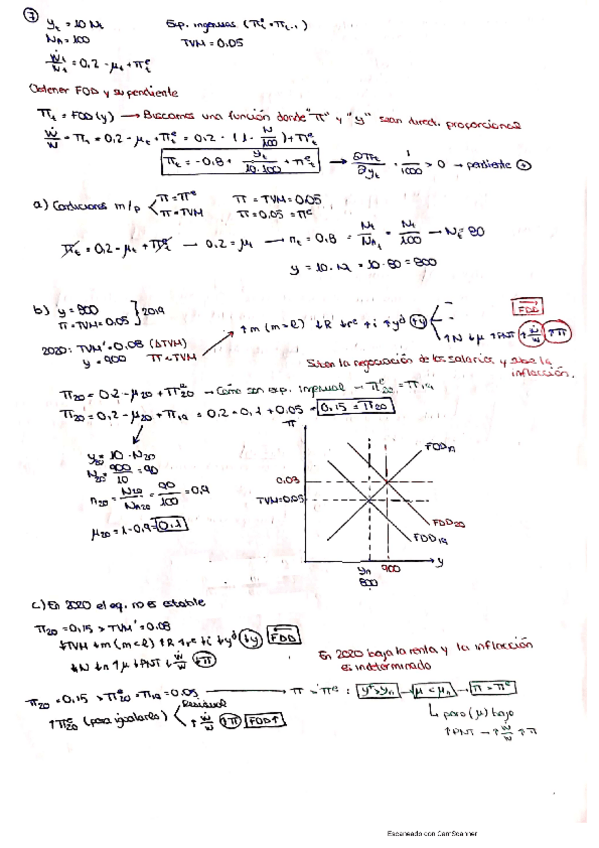 7 yt = 10 Nt    Exp. ingenuas (πt^e = πt-1)
NA = 100    TVM = 0.05
Ẇt/Wt = 0.2 - μt + πt^e
Obtener FOD y su pendiente
πt = FOD(y) → Buscamos una función donde "π" y "y" sean direct. proporcional
Ẇ/W = πt = 0.2 - μt + πt^e = 0.2 - (1 - N/100) + πt^e
πt = -0.8 + yt/10·100 + πt^e → ∂πt/∂yt · 1/1000 > 0 → pendiente +
a) Condiciones m/p π = π^e    π = TVM = 0.05
π = TVM    π = 0.05 = π^e
πt = 0.2 - μt + πt^e → 0.2 = μt → nt = 0.8 = Nt/NAt = Nt/100 → Nt = 80
y = 10 · Nt = 10 · 80 = 800
b) y = 800
π = TVM = 0.05 } 2019
2020: TVM' = 0.08 (ΔTVM)
y = 900    π < TVM
↑m (m=l) ↓R ↓r^e ↑i ↑y^d ↑y
FDD
↑N ↓μ ↑PNT ↑Ẇ/W ↑π
Suben la negociación de los salarios y sube la
inflación.
π20 = 0.2 - μ20 + π20^e → Como son exp. ingenuas → π20^e = π19
π20 = 0.2 - μ20 + π19 = 0.2 - 0.1 + 0.05 = 0.15 = π20
y20 = 10 · N20
N20 = 900/10 = 90
n20 = N20/NA20 = 90/100 = 0.9
μ20 = 1 - 0.9 = 0.1
π
FOD19
0.08
TVM=0.05
FDD20
FDD19
yn    900    y
800
c) En 2020 el eq. no es estable
π20 = 0.15 > TVM' = 0.08
↓TVM ↓m (m=l) ↑R ↑r^e ↓i ↓y^d ↓y FDD
↓N ↓n ↑μ ↓PNT ↓Ẇ/W ↓π
En 2020 baja la renta y la inflación
es indeterminado
π20 = 0.15 > π20^e = π19 = 0.05 → π > π^e : y > yn → μ < μn → π > π^e
↑π20^e (para igualarlos) Residual
↑Ẇ/W ↑π FOD↑
↳ paro (μ) bajo
↑PNT → ↑Ẇ/W ↑π
Escaneado con CamScanner